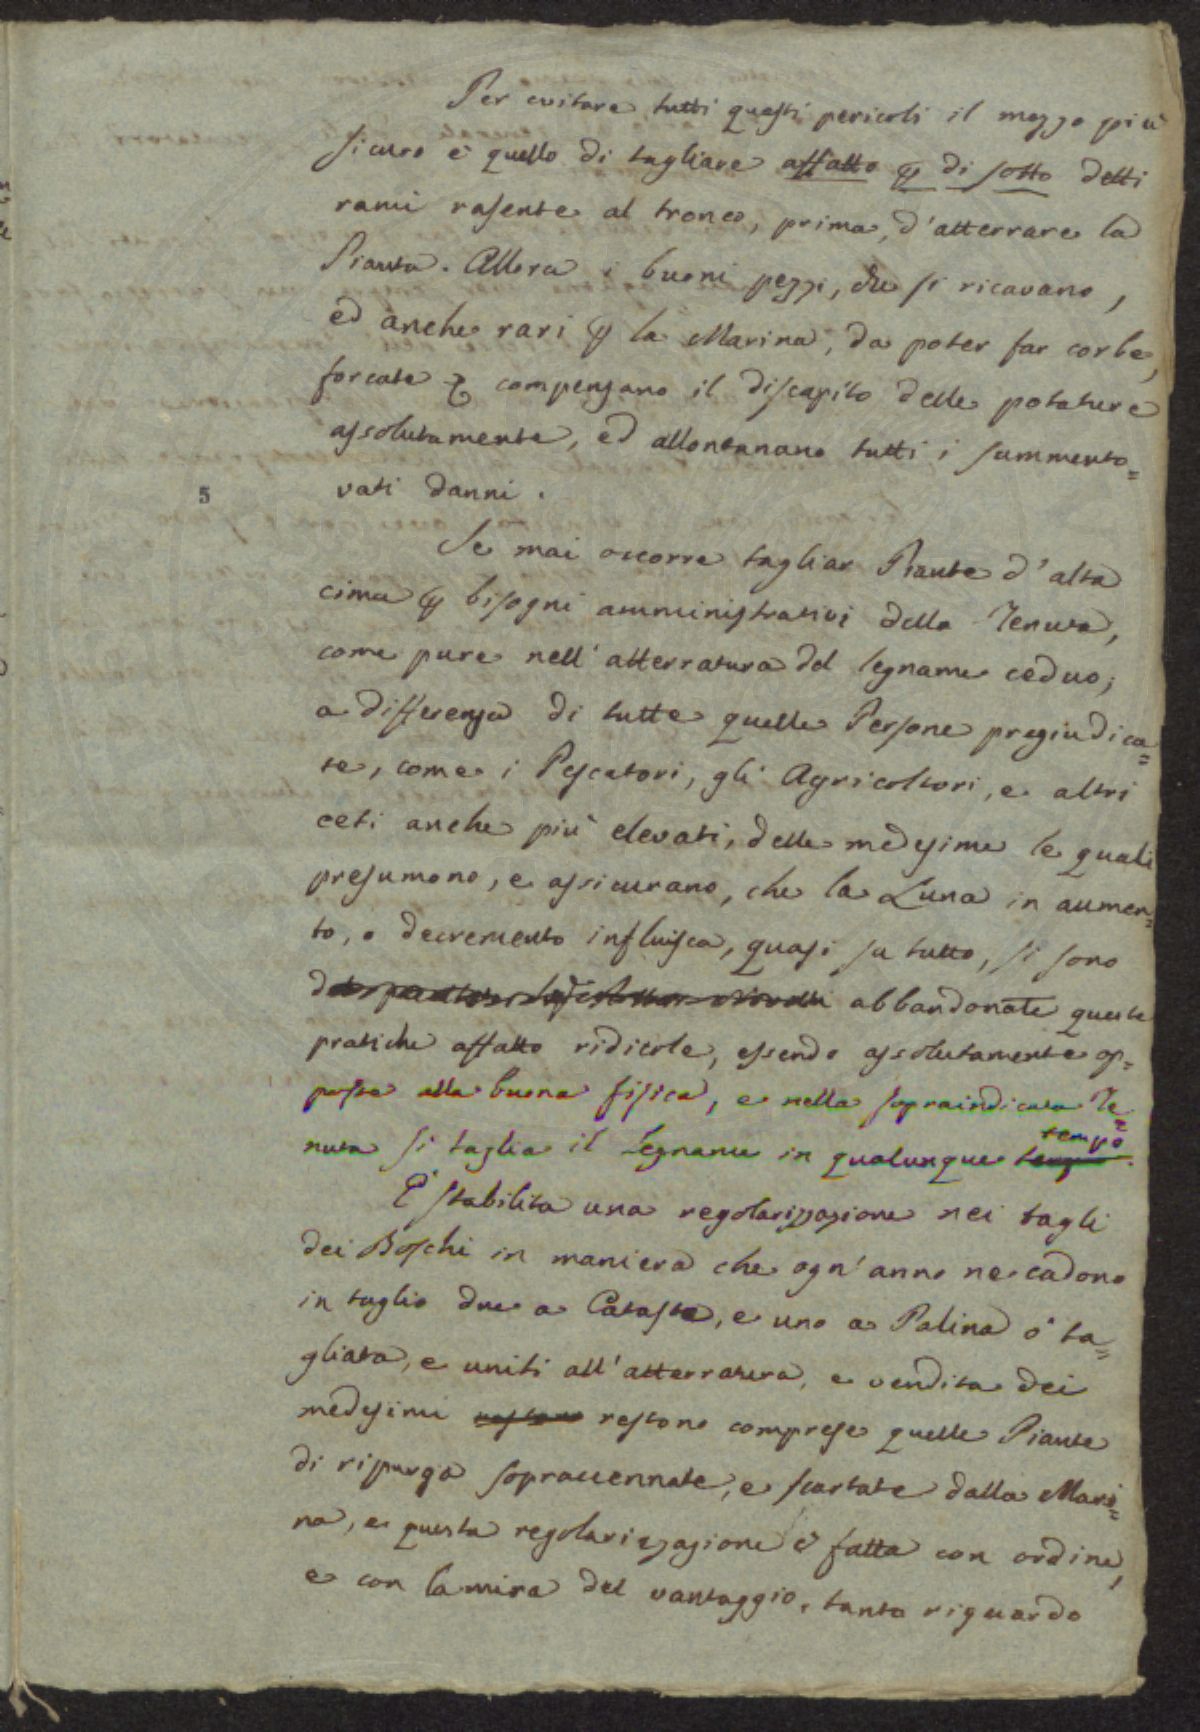 Per evitare tutti questi pericoli il mezzo più
sicuro è quello di tagliare affatto per di sotto detti
rami rasente al tronco, prima, d'atterrare la
Pianta. Allora i buoni pezzi, che si ricavano,
ed anche rari per la Marina, da poter far corbe,
forcate &c compensano il discapito delle potature
assolutamente, ed allontanano tutti i summento=
vati danni.
5
Se mai occorre tagliar Piante d'alta
cima per bisogni amministrativi della Tenuta,
come pure nell'atterratura del legname ceduo;
a differenza di tutte quelle Persone pregiudica=
te, come i Pescatori, gli Agricoltori, e altri
ceti anche più elevati, delle medesime le quali
presumono, e assicurano, che la Luna in aumen=
to, o decremento influisca, quasi su tutto, si sono
abbandonate queste
pratiche affatto ridicole, essendo assolutamente op=
poste alla buona fisica, e nella sopraindicata Te=
nuta si taglia il Legname in qualunque tempo.
E' stabilita una regolarizzazione nei tagli
dei Boschi in maniera che ogn'anno ne cadono
in taglio due a Catasta, e uno a Palina o' ta=
gliata, e uniti all'atterratura, e vendita dei
medesimi restono comprese quelle Piante
di ripurga sopraccennate, e scartate dalla Mari=
na, e questa regolarizzazione è fatta con ordine,
e con la mira del vantaggio, tanto riguardo